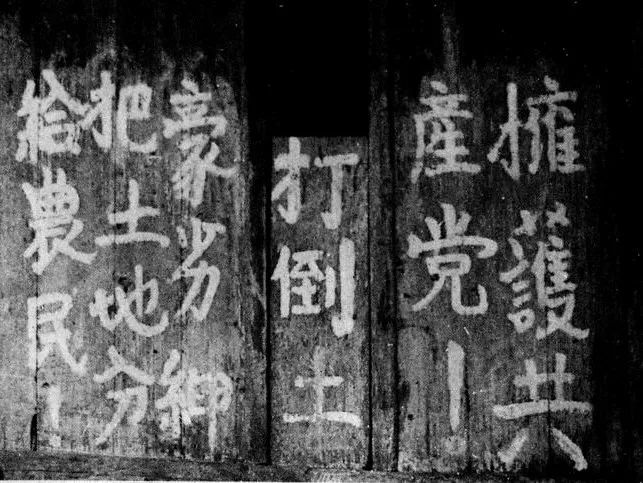 擁護共
産党！
打倒土
豪劣紳
把土地分
給農民！